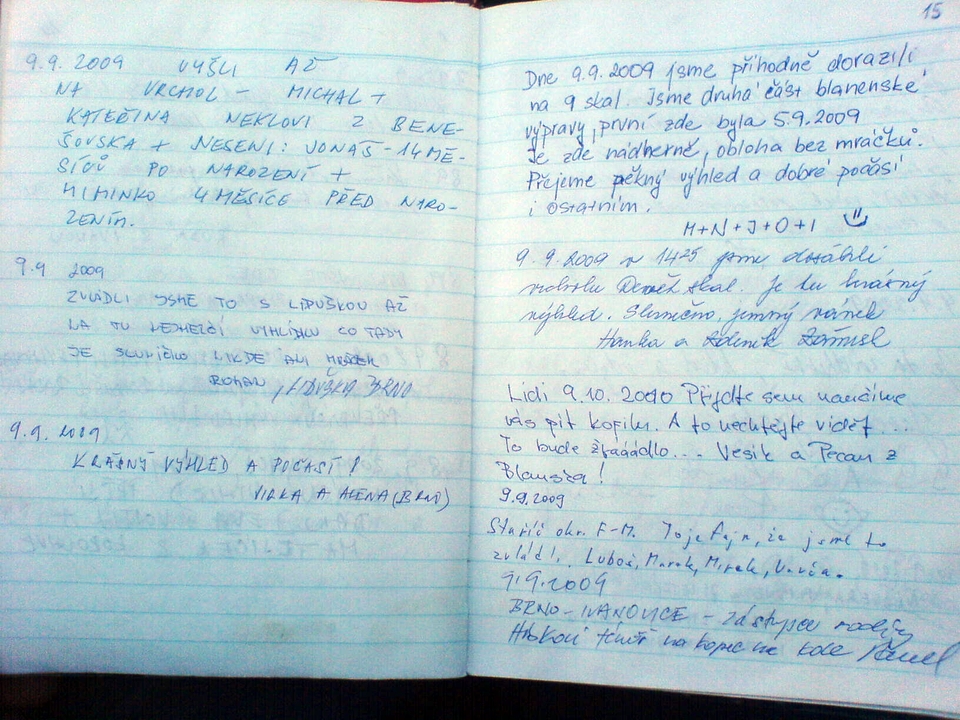 9.9.2009 VYŠLI AŽ
NA VRCHOL - MICHAL +
KATEŘINA NEKLOVI Z BENE-
ŠOVSKA + NESENI: JONÁŠ - 14 MĚ-
SÍCŮ PO NAROZENÍ +
MIMINKO 4 MĚSÍCE PŘED NARO-
ZENÍM.
9.9 2009
ZVLÁDLI JSME TO S LIDUŠKOU AŽ
NA TU VYHLÍDKU CO TADY
JE SLUNÍČKO NIKDE ANI MRÁČEK
ROMAN, LIDUŠKA BRNO
9.9.2009
KRÁSNÝ VÝHLED A POČASÍ!
JIRKA A ALENA (BRNO)
15
Dne 9.9.2009 jsme příhodně dorazili
na 9 skal. Jsme druhá část blanenské
výpravy, první zde byla 5.9.2009
Je zde nádherně, obloha bez mráčků.
Přejeme pěkný výhled a dobré počasí
i ostatním.
M+N+J+O+I
9.9.2009 v 14²⁵ jsme
Devět skal. Je tu krásný
výhled. Slunečno, jemný vánek
Hanka a Zdeněk
Lidi 9.10.2010 Přijďte sem naučíme
vás pít kofilu. A to nechtějte vidět...
To bude žrááádlo... Vesik a Pecan z
Blanska!
9.9.2009
Staříč okr. F-M. To je fajn, že jsme to
zvládli. Luboš, Marek, Mirek,
9.9.2009
BRNO-IVANOVICE - zástupce rodiny
na kopec na kole Pavel